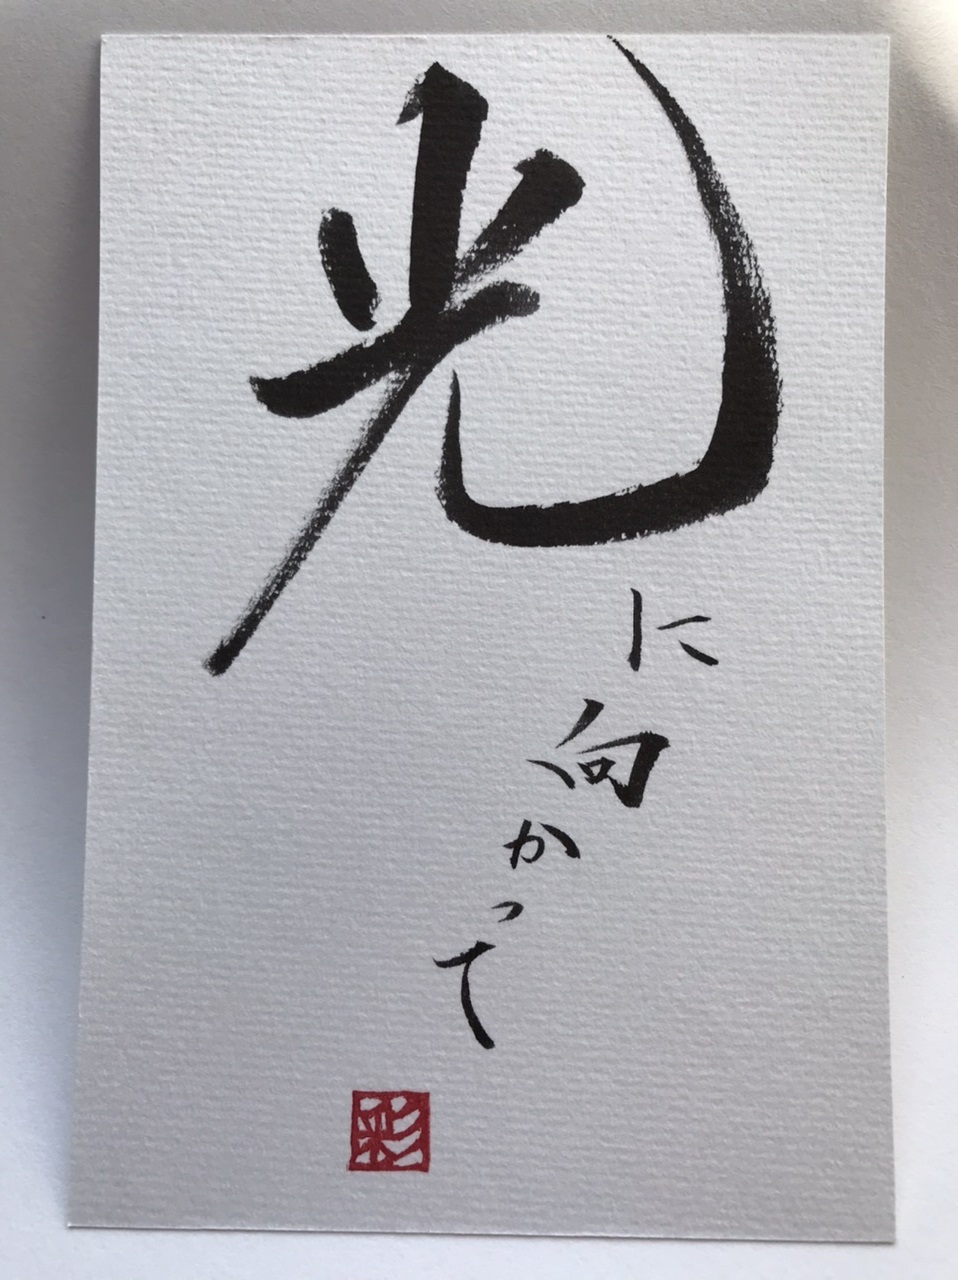 光に向かって
彩